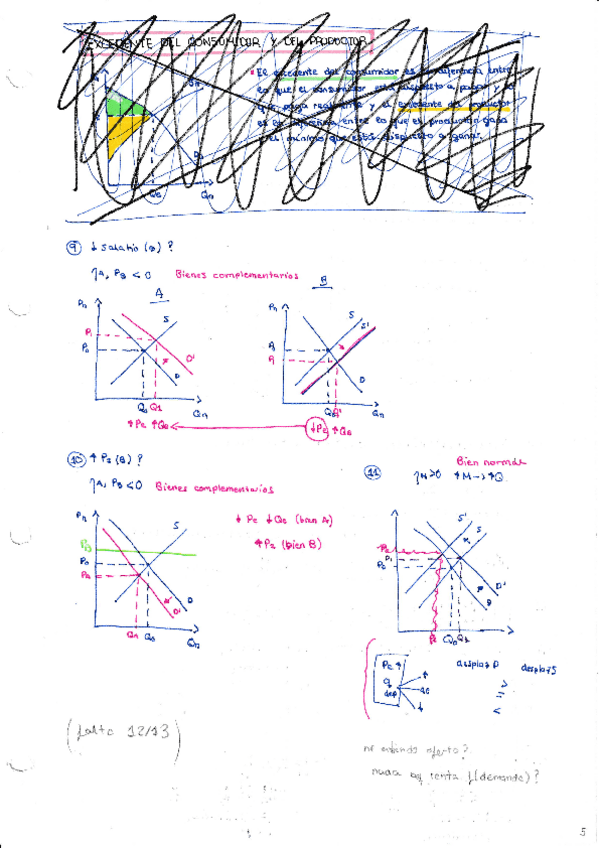 EXCEDENTE DEL CONSUMIDOR Y DEL PRODUCTOR
El excedente del consumidor es la diferencia entre
lo que el consumidor está dispuesto a pagar y lo
que paga realmente y el excedente del productor
es la diferencia entre lo que el producción gana
el mínimo que está dispuesto a ganar.
Q0 Qn
9 ↓ salario (B) ?
ηA, PB < 0 Bienes complementarios
A B
Pn S D' D P1 P0 Q0 Q1 Qn
Pn S S' D Qn
↑Pe ↑Qe ↓Pe ↑Qe
10 ↑ P2 (B) ?
ηA, PB < 0 Bienes complementarios
↓ Pe ↓ Qe (bien A)
↑P2 (bien B)
Pn S D D' P0 Q1 Q0 Qn
11 Bien normal
ηM>0 ↑M → ↑Q
S' S D' D P1 P0 Pe Q0 Q1
Pe ↑
Q dep
desplaz D desplaz S
>
=
<
(falta 12/13)
no entiendo oferta?
renta f(demanda)?
5